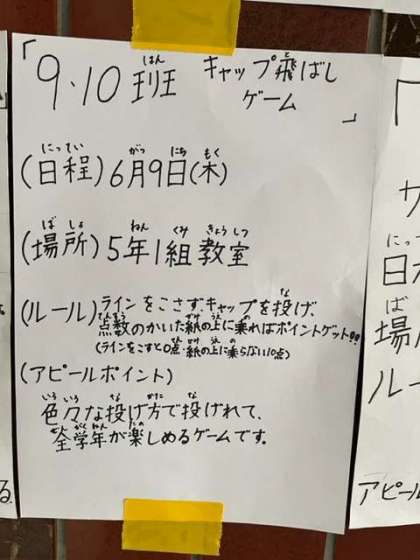 「9・10班 キャップ飛ばし
ゲーム」
(日程)6月9日(木)
(場所)5年1組教室
(ルール)ラインをこさずキャップを投げ、
点数のかいた紙の上に乗ればポイントゲット!!
(ラインをこすと0点・紙の上に乗らない10点)
(アピールポイント)
色々な投げ方で投げれて、
全学年が楽しめるゲームです。
「
サ
日
場
ルー
アピール